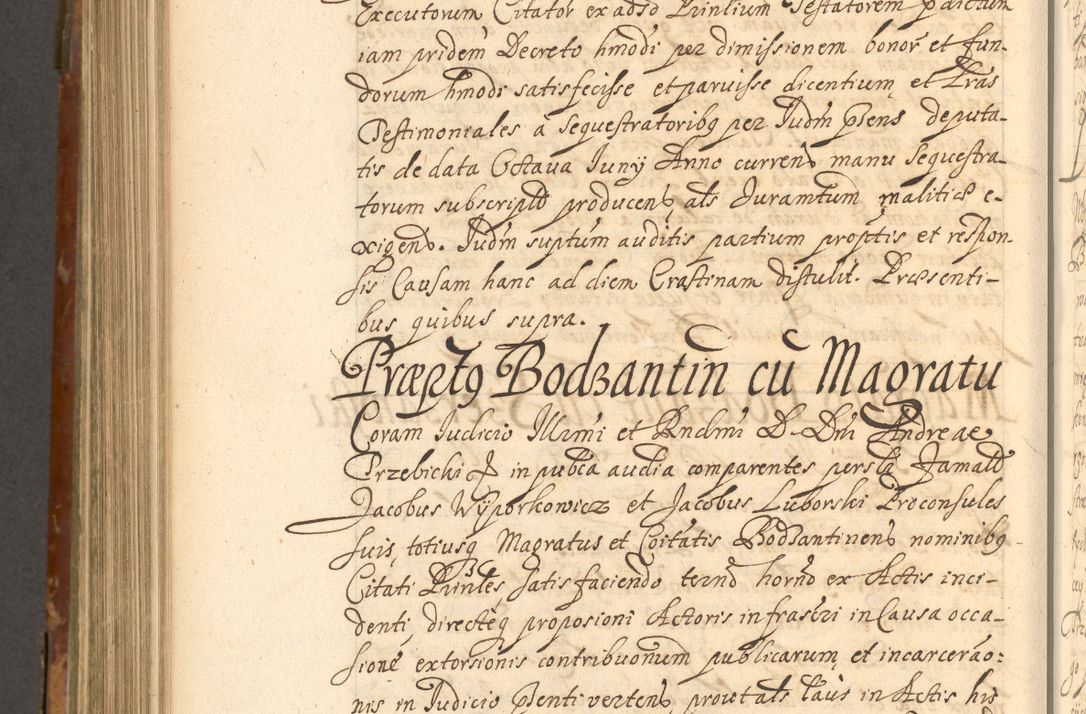 Executorum Citator ex adso Prinlium Testatorem pdictum
iam pridem Decreto hmodi per dimissionem bonor et fun-
dorum hmodi satisfecisse et paruisse dicentium et Lras
Testimoniales a Sequestratoribq per Iudm psens deputa-
tis de data Octaua Iuny Anno currens manu Sequestra-
torum subscriptas producens als Iuramtum malitiæ e-
xigens. Iudm suptum auditis partium proptis et respon-
sis Causam hanc ad diem Crastinam distulit. Præsenti-
bus quibus supra.
Præpztq Bodzantin cu Magratu
Coram Iudicio Illmi et Rndmi D. Dni Andreae
Trzebicki in pubca audia comparentes persl Famati
Jacobus Wyporkowicz et Jacobus Luborski Proconsules
suis totiusq Magratus et Coitatis Bodzantinens nominibq
Citati Prinles satis faciendo termo horno ex Actis inci-
denti directeq proposioni Actoris infrascri in Causa occa-
sione extorsionis contribuonum publicarum et incarcerao:
nis in Iudicio psenti vertens prout als latius in Actis his